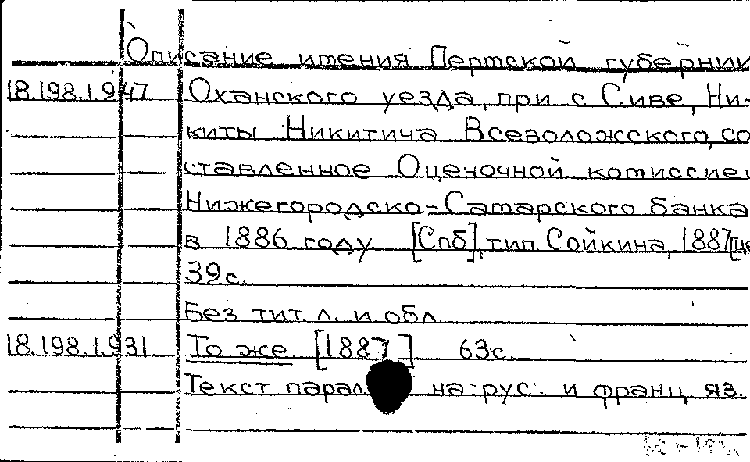 Описание имения Пермской губернии
18.198.1.947 Оханского уезда, при с Сиве, Ни-
киты Никитича Всеволожского, со
ставленное Оценочной комиссией
Нижегородско-Самарского банка
в 1886 году [Спб], тип Сойкина, 1887 [це
39с.
Без тит. л. и обл
18.198.1.931 То же [1887] 63с.
Текст парал на рус. и франц. яз.